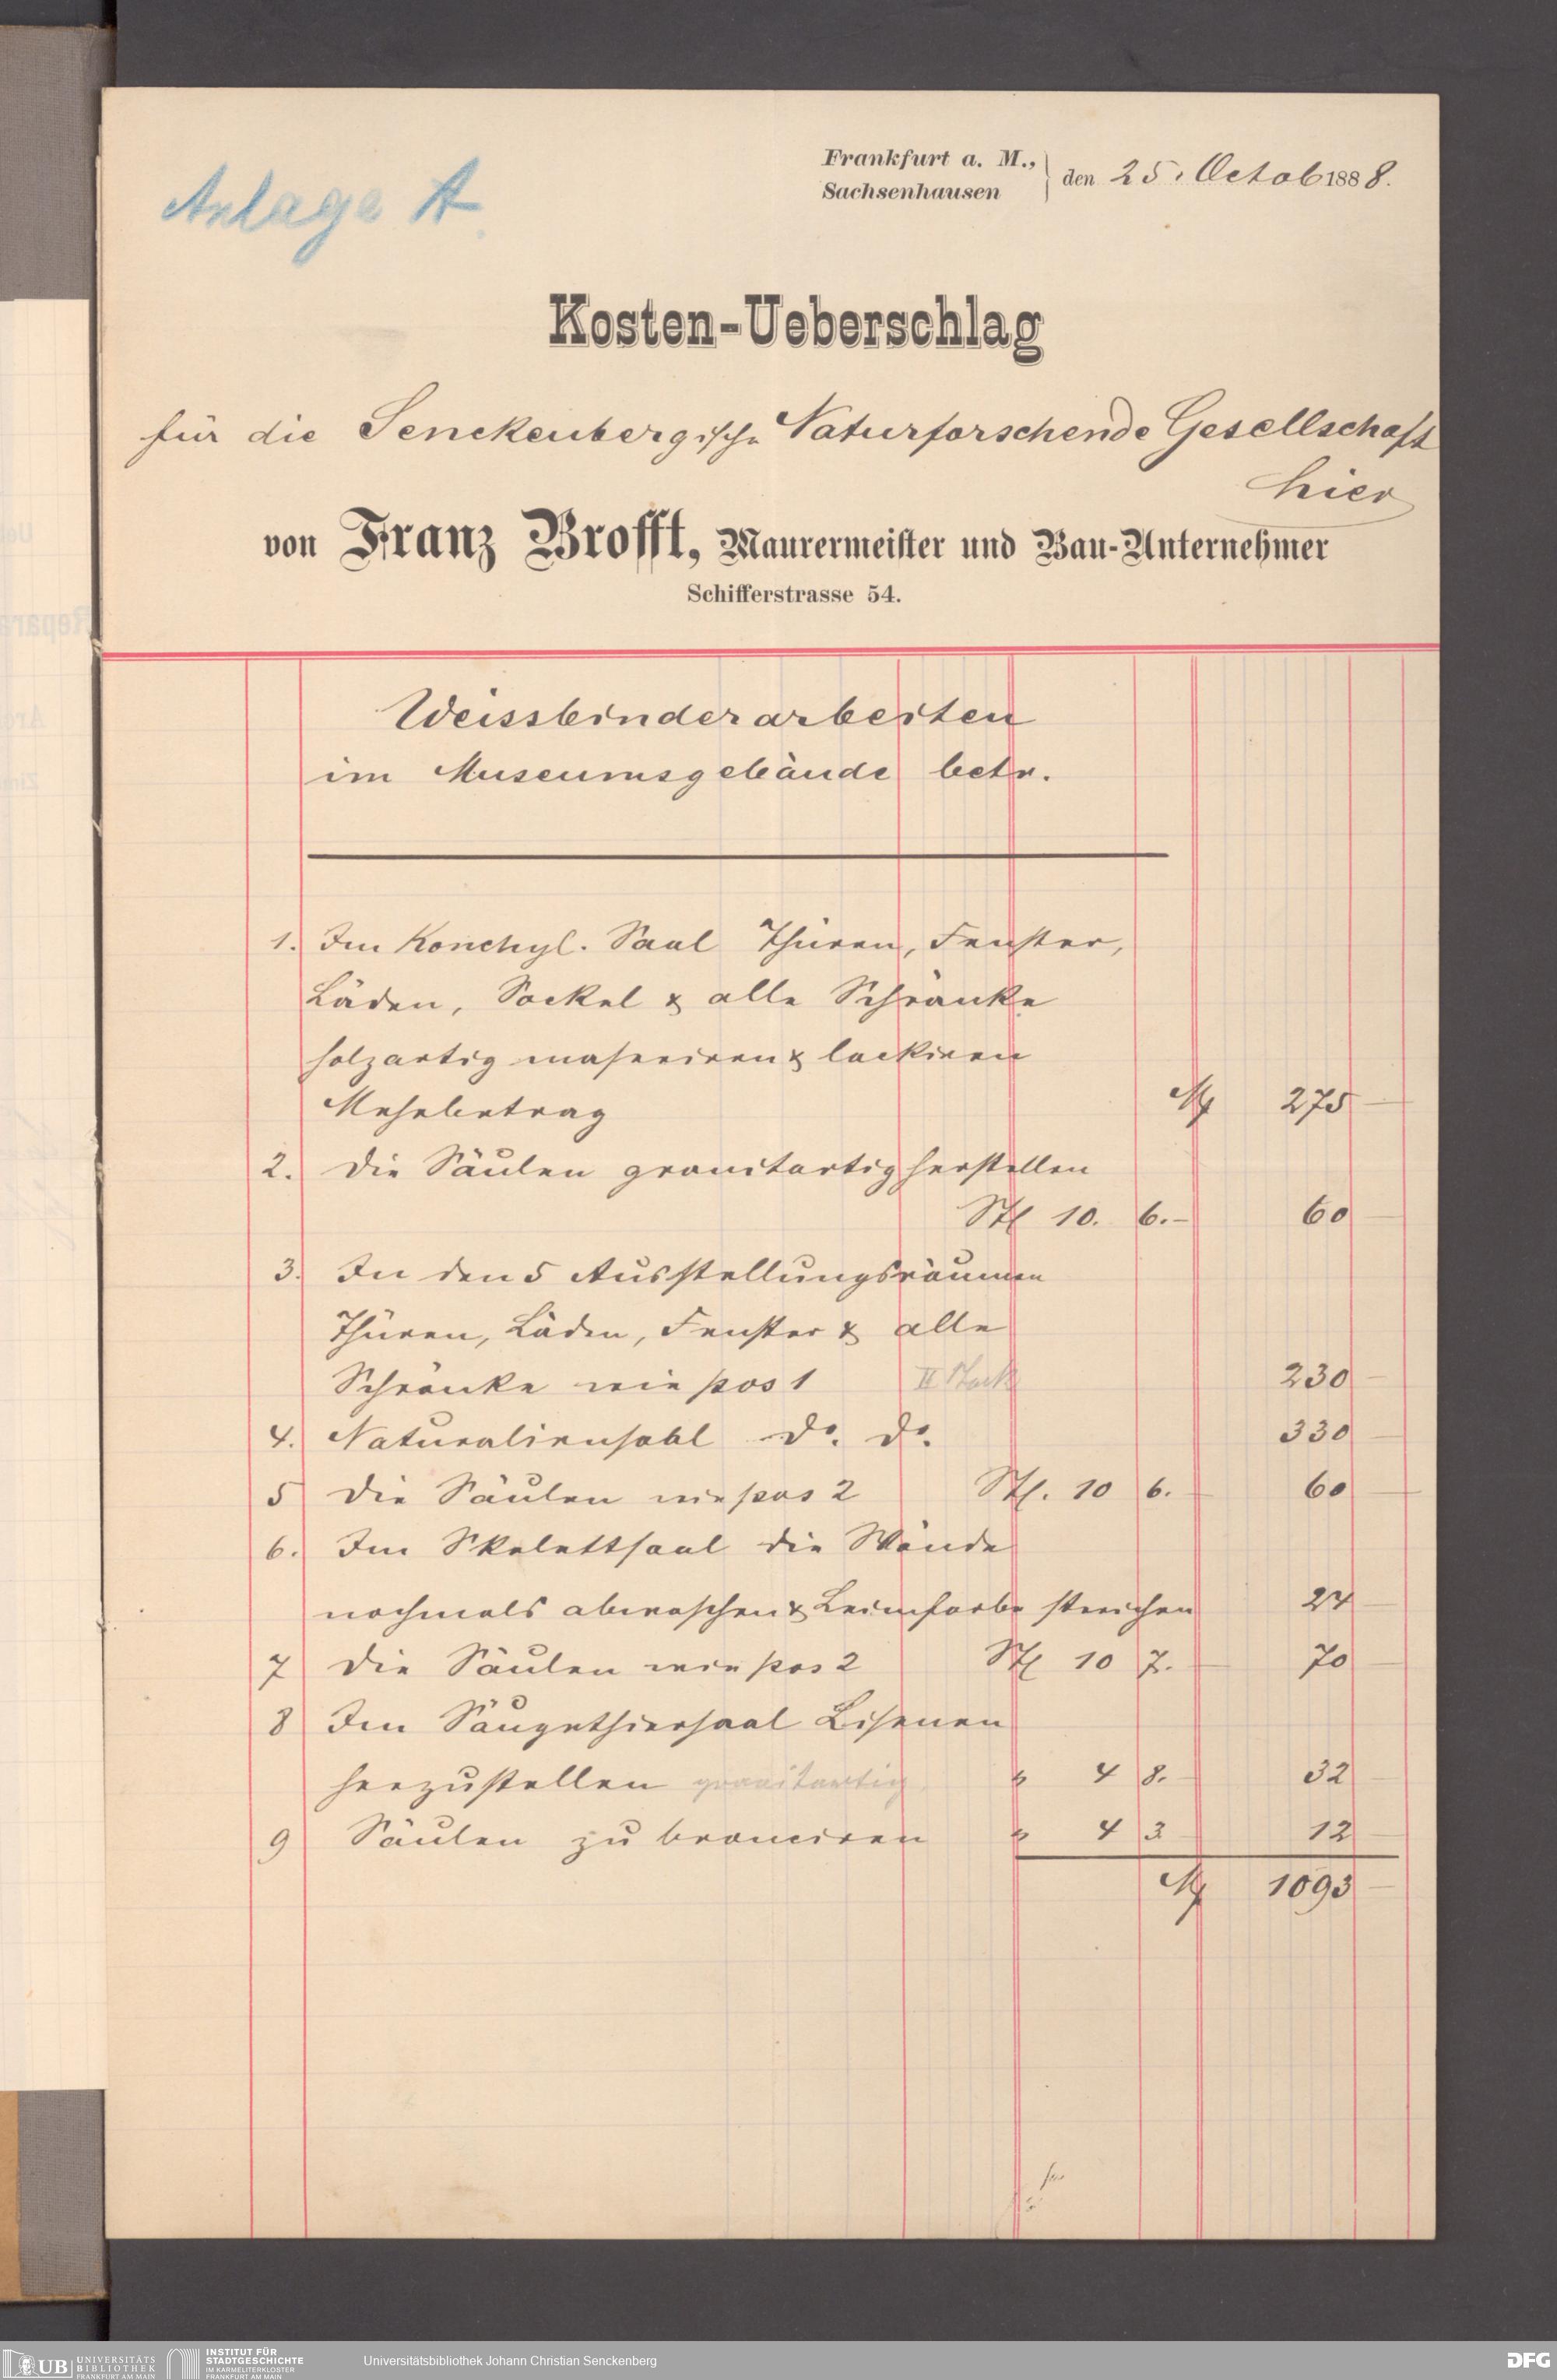 Anlage A.
Frankfurt a. M.,
Sachsenhausen
den 25. Octob 1888.
Kosten-Ueberschlag
für die Senckenbergische Naturforschende Gesellschaft
hier
von Franz Brofft, Maurermeister und Bau-Unternehmer
Schifferstrasse 54.
Weissbinderarbeiten
im Museumsgebäude betr.
1. Im Konchyl. Saal Thüren, Fenster,
Läden, Sockel & alle Schränke
holzartig maseriren & lackiren
Mehrbetrag M 275 —
2. Die Säulen granitartig herstellen
Stk 10. 6.- 60 —
3. In den 5 Ausstellungsräumen
Thüren, Läden, Fenster & alle
Schränke wie pos 1 II Stock 230 —
4. Naturaliensahl do. do. 330 —
5 Die Säulen wie pos 2 Stk. 10 6.- 60 —
6. Im Skelettsaal die Wände
nochmals abwaschen & Leimfarbe streichen 24 —
7 Die Säulen wie pos 2 Stk 10 7.- 70 —
8 Im Säugethiersaal Lisenen
herzustellen granitartig " 4 8.- 32 —
9 Säulen zu bronciren " 4 3 - 12 —
M 1093 —
UB UNIVERSITÄTS
BIBLIOTHEK
FRANKFURT AM MAIN
INSTITUT FÜR
STADTGESCHICHTE
IM KARMELITERKLOSTER
FRANKFURT AM MAIN
Universitätsbibliothek Johann Christian Senckenberg
DFG